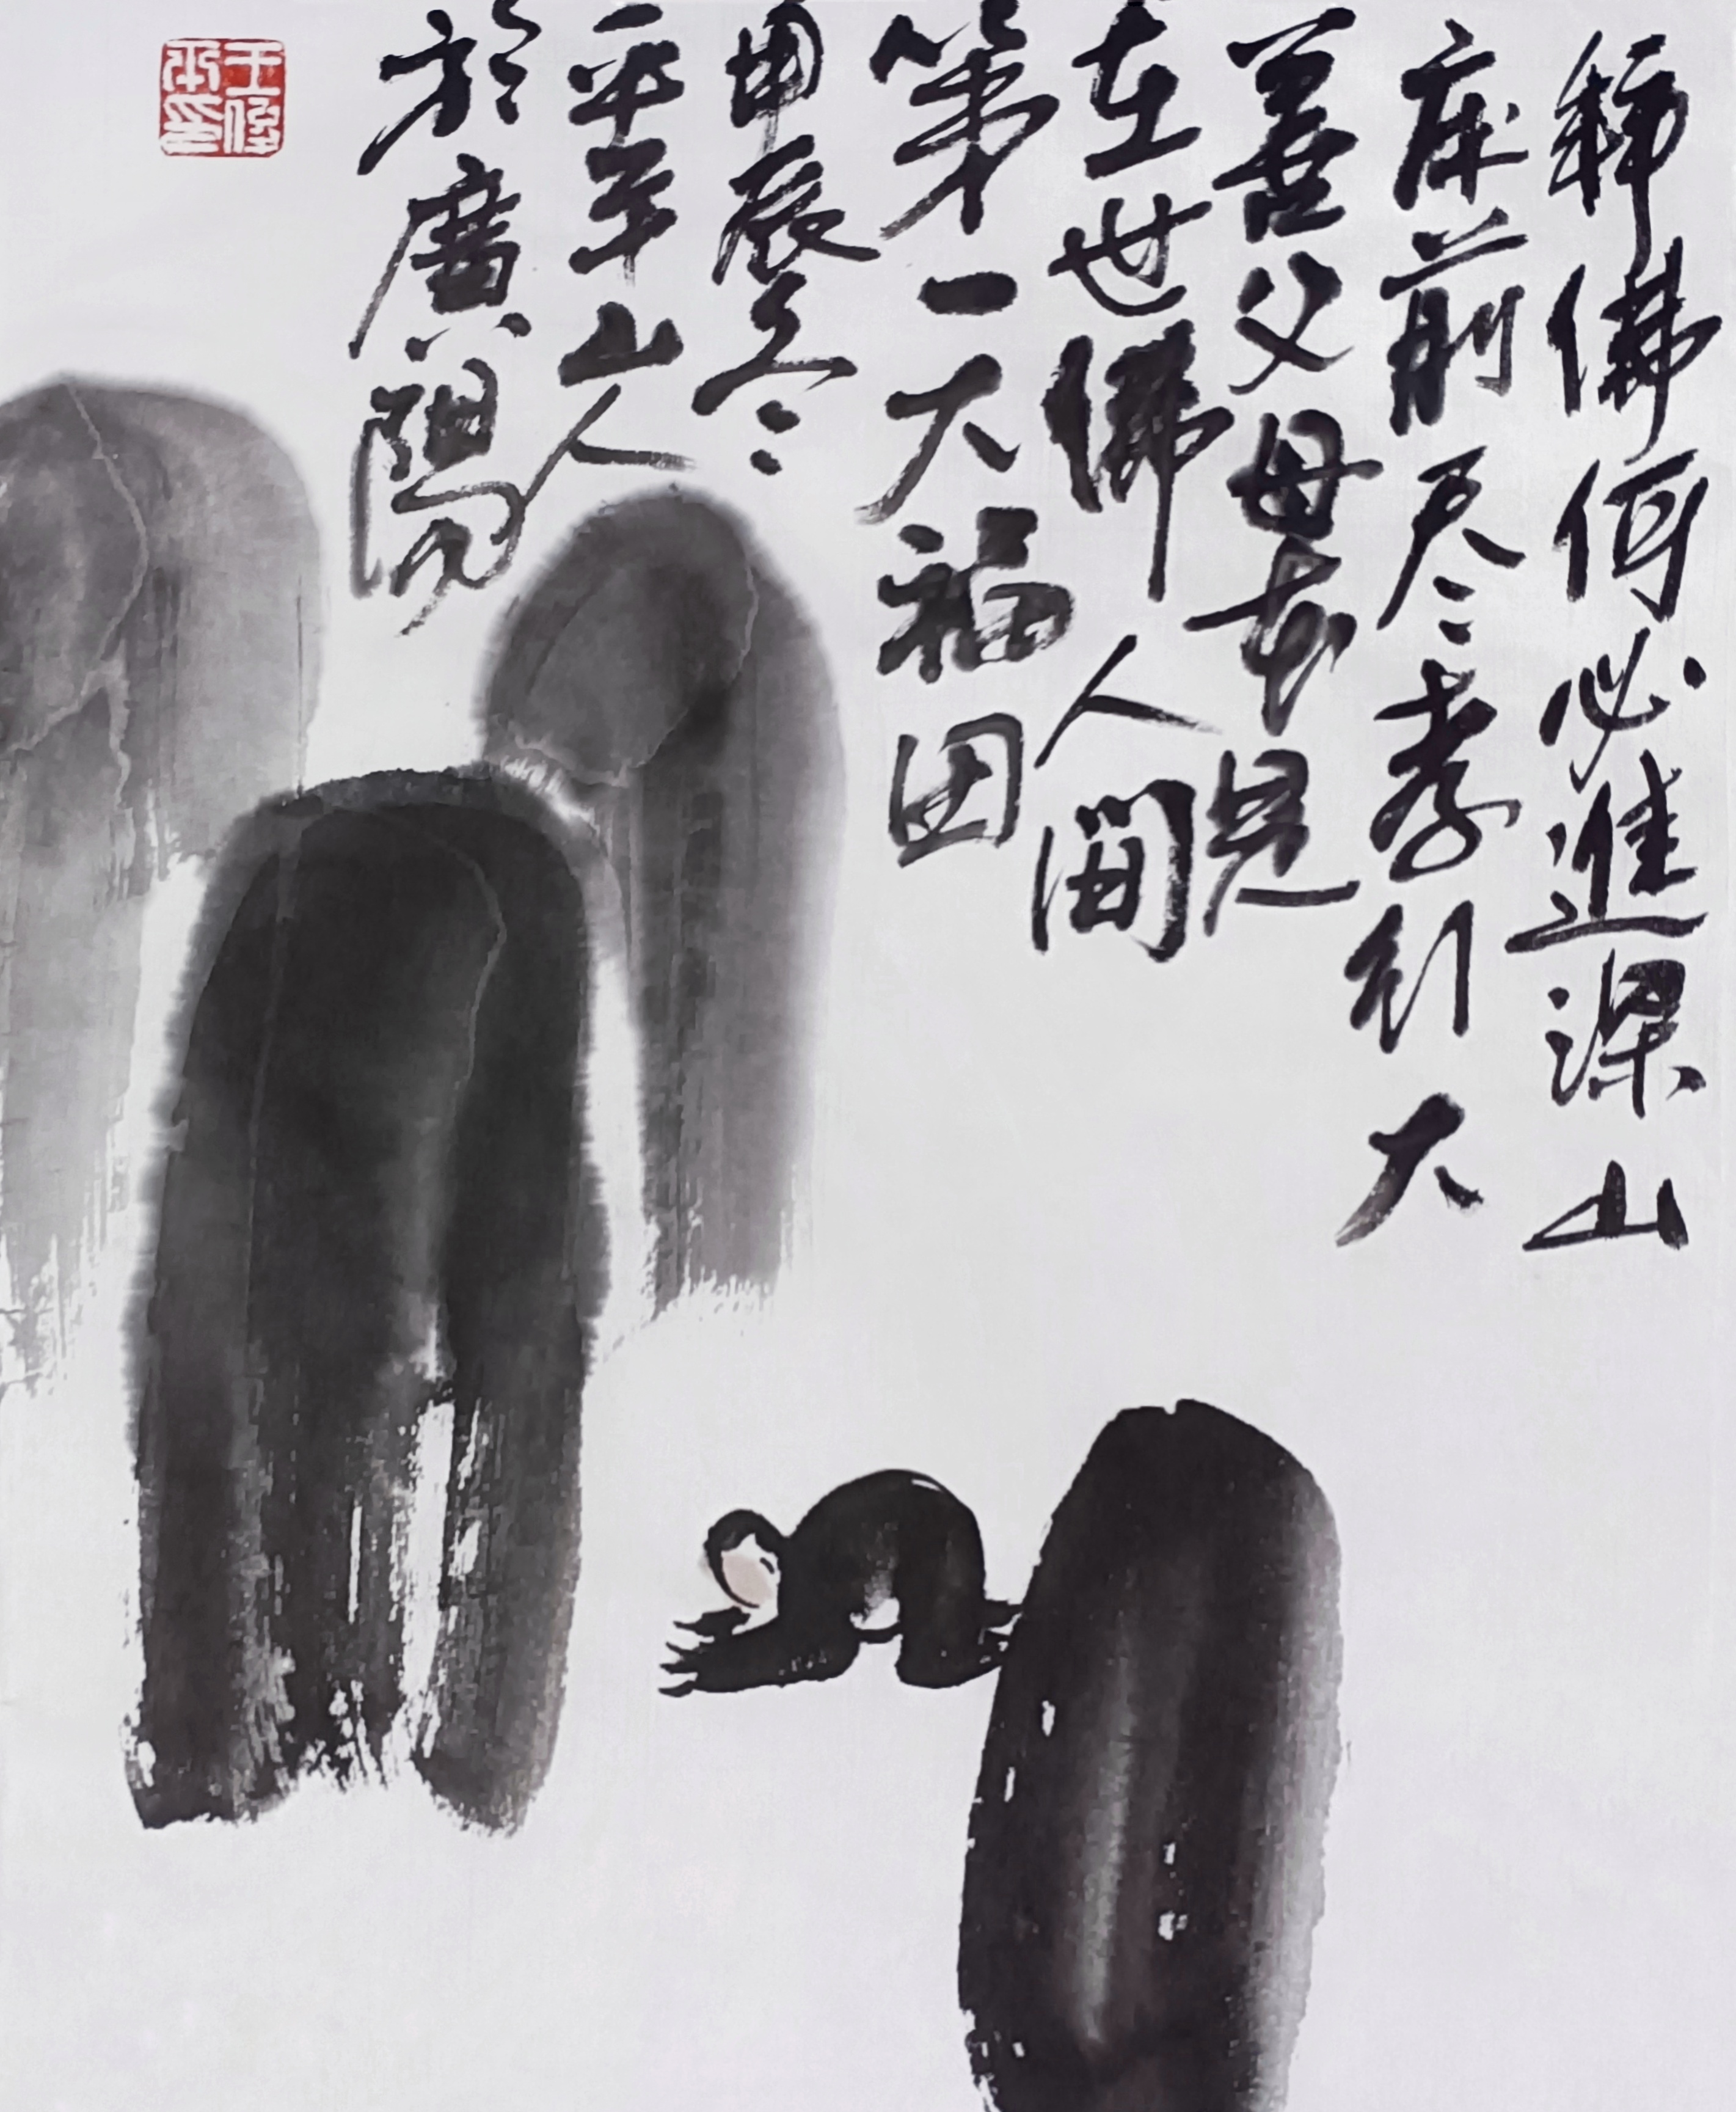 拜佛何必進深山
床前尽孝行大
善父母本是
在世佛人間
第一大福田
甲辰冬
平山人
於廣陽
王俊平印